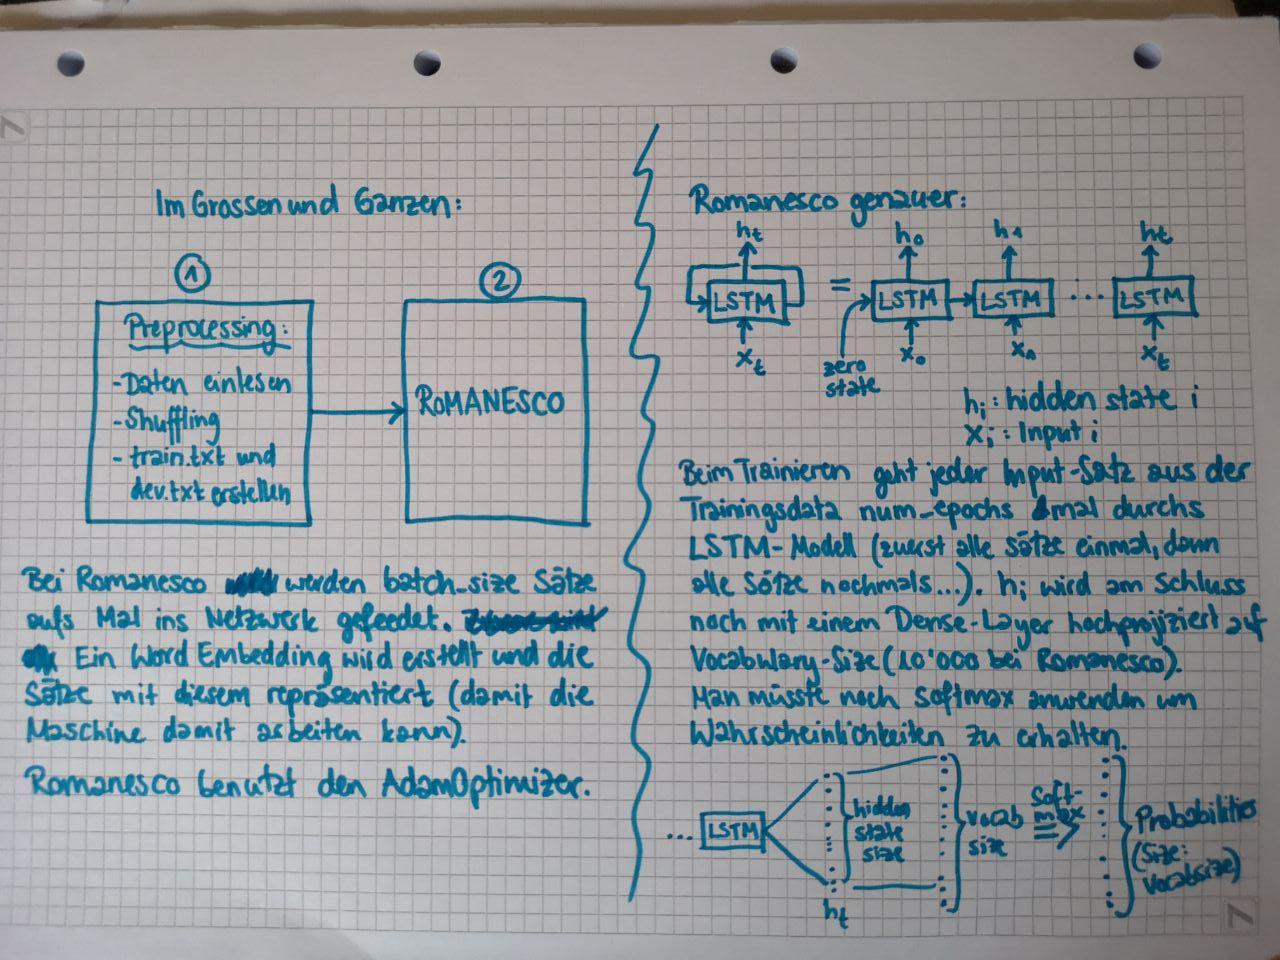 Im Grossen und Ganzen:
1
Preprocessing:
-Daten einlesen
-Shuffling
- train.txt und
dev.txt erstellen
2
ROMANESCO
Bei Romanesco werden batch_size Sätze
aufs Mal ins Netzwerk gefeedet.
Ein Word Embedding wird erstellt und die
Sätze mit diesem repräsentiert (damit die
Maschine damit arbeiten kann).
Romanesco benutzt den AdamOptimizer.
Romanesco genauer:
ht h0 h1 ht
LSTM = LSTM LSTM ... LSTM
xt zero state x0 x1 xt
hi: hidden state i
xi: Input i
Beim Trainieren geht jeder Input-Satz aus der
Trainingsdata num_epochs mal durchs
LSTM-Modell (zuerst alle Sätze einmal, dann
alle Sätze nochmals...). hi wird am Schluss
noch mit einem Dense-Layer hochprojiziert auf
Vocabulary-Size (10'000 bei Romanesco).
Man müsste noch Softmax anwenden um
Wahrscheinlichkeiten zu erhalten.
... LSTM
hidden
state
size
ht
vocab
size
Soft-
max
=>
Probabilities
(Size:
vocabsize)